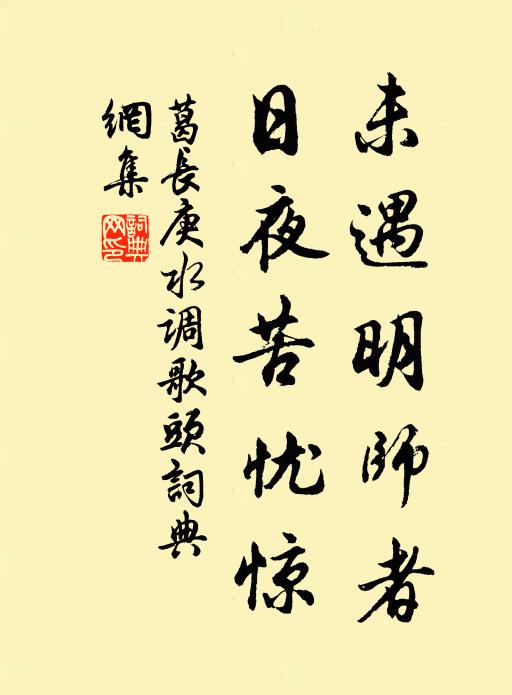 未遇明师者
日夜苦忧惊
葛长庚水调歌头詞典
網集
詞典网印